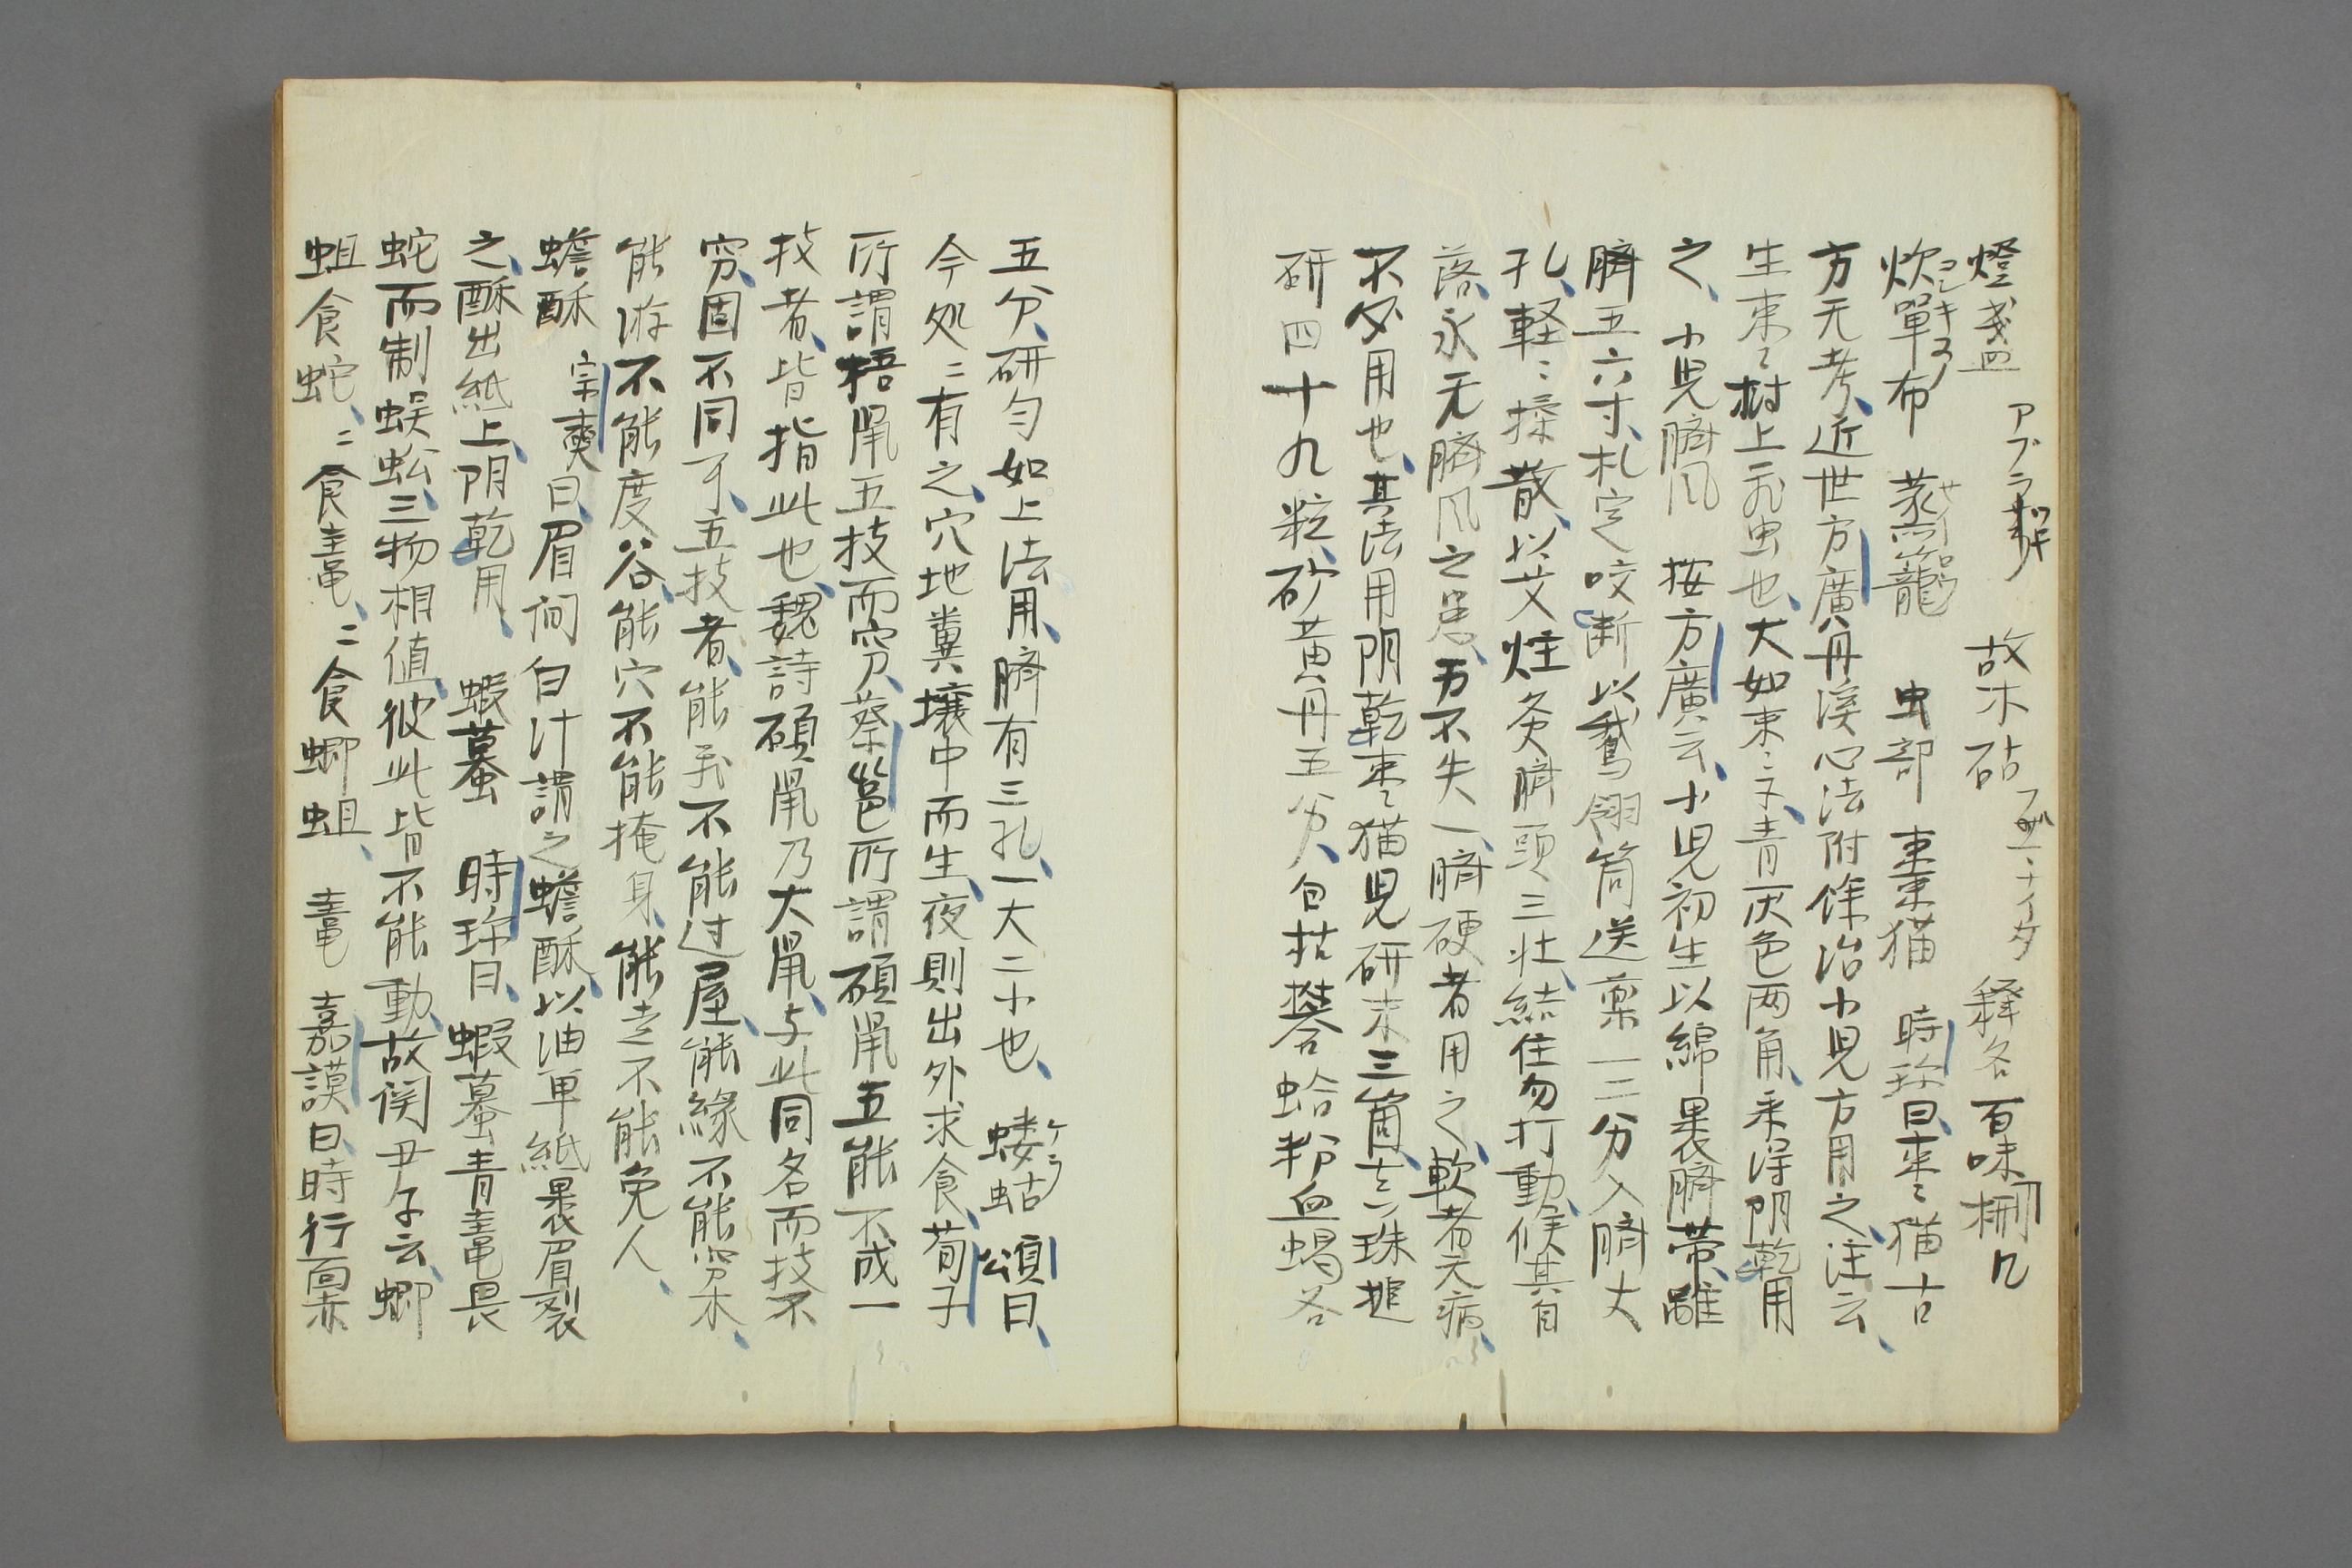 燈盞 アブラツキ 故木砧 フルマナイタ 釋名百味㭠几
炊單布 コシキヌノ 蒸籠 虫部 棗猫 時珍曰、棗猫古
方无考、近世方廣丹溪心法附餘治小児方用之、注云、
生棗樹上飛虫也、大如棗子、青灰色两角、采得阴乾用
之、小児臍风 按方廣云、小児初生以綿裹臍帶、離
臍五六寸、札定咬断以鵞翎筒送薬一二分入臍大
孔、軽〻揉散、以艾炷灸臍頭三壮、結住勿打動、候其自
落、永无臍风之患、万不失一、臍硬者用之、軟者无病、
不必用也、其法用阴乾棗猫児研末三箇、真珠搥
研四十九粒、砂黄丹五分、白枯礬蛤粉血蝎各
五分、研匀如上法用、臍有三孔、一大二小也、 螻蛄 ケラ 頌曰、
今処〻有之、穴地糞壤中而生、夜則出外求食、荀子
所謂梧鼠五技而窮、蔡邕所謂碩鼠五能不成一
技者、皆指此也、魏詩碩鼠乃大鼠、与此同名而技不
窮、固不同耳、五技者、能飛不能过屋、能緣不能窮木、
能游不能度谷、能穴不能掩身、能走不能免人、
蟾酥 宗奭曰、眉间白汁謂之蟾酥、以油单紙裹眉裂
之、酥出紙上、阴乾用、 蝦蟇 時珍曰、蝦蟇青鼃畏
蛇而制蜈蚣、三物相值、彼此皆不能動、故関尹子云、蝍
蛆食蛇、〻食鼃、〻食蝍蛆、 鼃 嘉謨曰、時行面赤